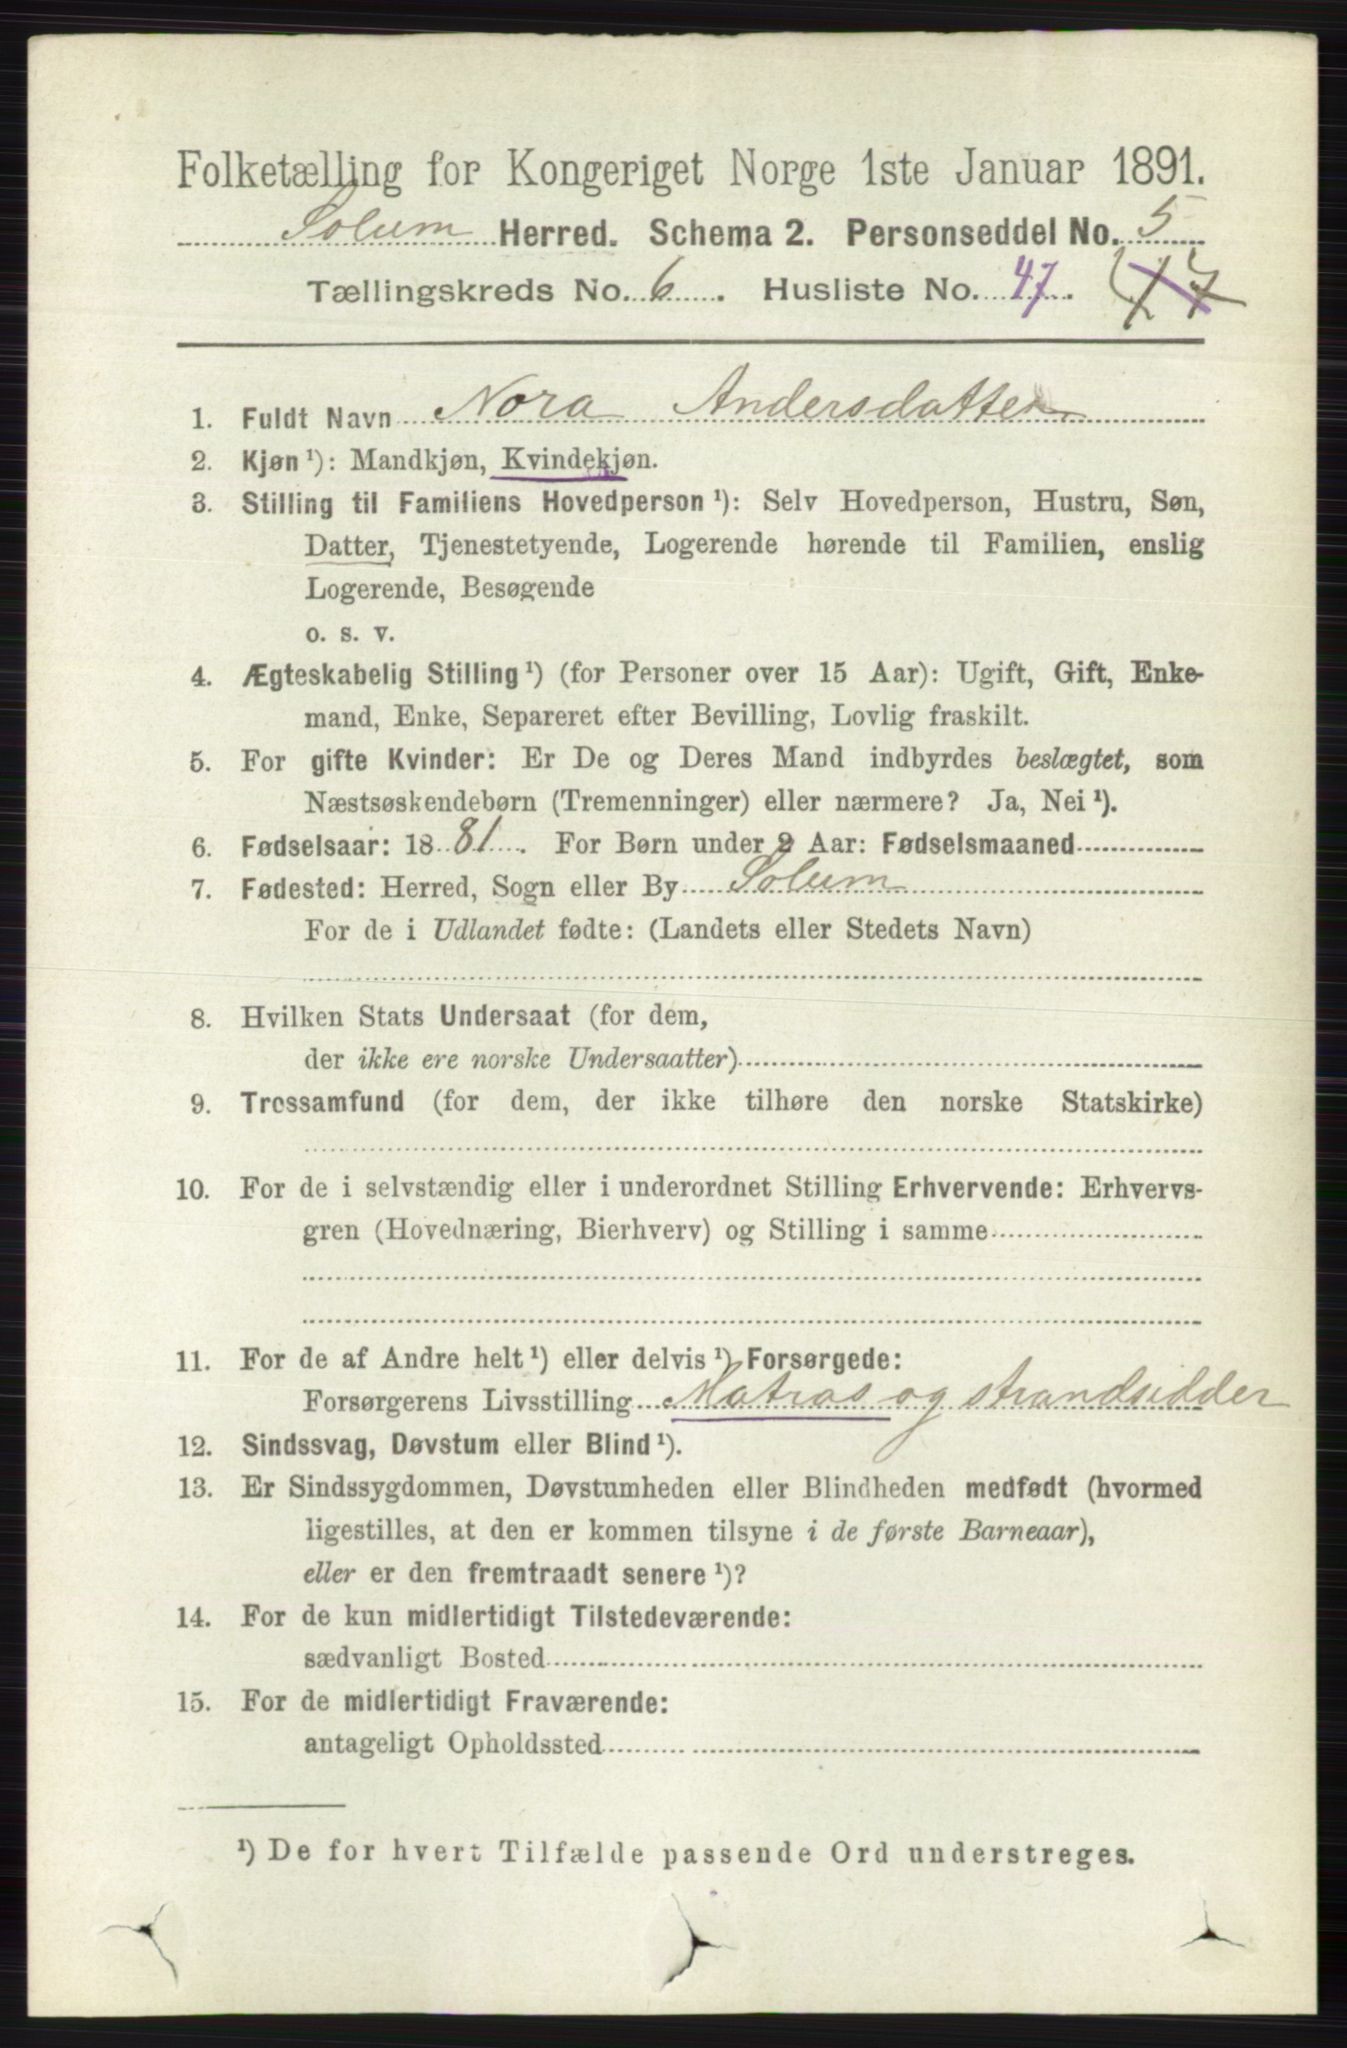 Folketælling for Kongeriget Norge 1ste Januar 1891.
Solum Herred. Schema 2. Personseddel No. 5
Tællingskreds No. 6. Husliste No. 47. 47
1. Fuldt Navn Nora Andersdatter
2. Kjøn ¹): Mandkjøn, Kvindekjøn.
3. Stilling til Familiens Hovedperson ¹): Selv Hovedperson, Hustru, Søn,
Datter, Tjenestetyende, Logerende hørende til Familien, enslig
Logerende, Besøgende
o. s. v.
4. Ægteskabelig Stilling ¹) (for Personer over 15 Aar): Ugift, Gift, Enke-
mand, Enke, Separeret efter Bevilling, Lovlig fraskilt.
5. For gifte Kvinder: Er De og Deres Mand indbyrdes beslægtet, som
Næstsøskendebørn (Tremenninger) eller nærmere? Ja, Nei ¹).
6. Fødselsaar: 1881. For Børn under 2 Aar: Fødselsmaaned
7. Fødested: Herred, Sogn eller By Solum
For de i Udlandet fødte: (Landets eller Stedets Navn)
8. Hvilken Stats Undersaat (for dem,
der ikke ere norske Undersaatter)
9. Trossamfund (for dem, der ikke tilhøre den norske Statskirke)
10. For de i selvstændig eller i underordnet Stilling Erhvervende: Erhvervs-
gren (Hovednæring, Bierhverv) og Stilling i samme
11. For de af Andre helt ¹) eller delvis ¹) Forsørgede:
Forsørgerens Livsstilling Matros og strandsidder
12. Sindssvag, Døvstum eller Blind ¹).
13. Er Sindssygdommen, Døvstumheden eller Blindheden medfødt (hvormed
ligestilles, at den er kommen tilsyne i de første Barneaar),
eller er den fremtraadt senere ¹)?
14. For de kun midlertidigt Tilstedeværende:
sædvanligt Bosted
15. For de midlertidigt Fraværende:
antageligt Opholdssted
¹) De for hvert Tilfælde passende Ord understreges.